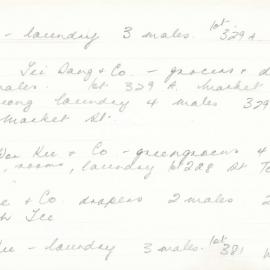 - laundry 3 males. lot 329 A.
Tei Dang & Co. - grocers &
males. lot 329 A. Market
ong laundry 4 males 329
Market St.
Wen Kee & Co - greengrocers 4
, rooms, laundry lot 228 St
e & Co. drapers 2 males 2
h Tee
- laundry 3 males. lot 381